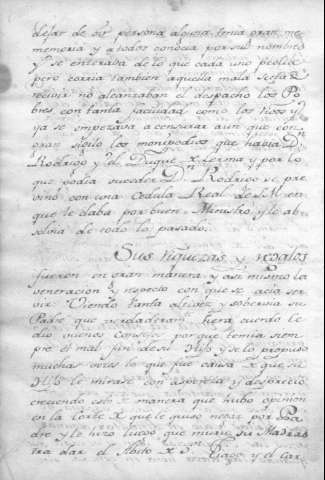 dejar de oir persona alguna tenia gran me
memoria y a todos conocia por sus nombres
y se enteraba de lo que cada uno pedia
pero corria tambien aquella mala secta de
recivir no alcanzaban el despacho los Po
bres con tanta facilidad como los ricos y
ya se empezava a censurar aun que con
gran sigilo los monipodios que havia Dn
Rodrigo y el Duque de Lerma y por lo
que podia suceder Dn Rodrigo se pre
vino con una Cedula Real de S.M. en
que le daba por buen Ministro y le ab
solvia de todo lo pasado.
Sus riquezas y regalos
fueron en gran manera y asi mismo la
veneracion y respecto con que se acia ser
vir Viendo tanta altivez y sobervia su
Padre que verdaderamente era cuerdo le
dio buenos consejos porque temia siem
pre el mal fin de su Hijo y se lo propuso
muchas veces lo que fue causa de que su
Hijo le mirase con aspereza y desprecio
creciendo esto de manera que hubo opinion
en la Corte de que le quiso negar por Pa
dre y le hizo luego que murio su Madras
tra dar el Abito de Sn Tiago y el Car